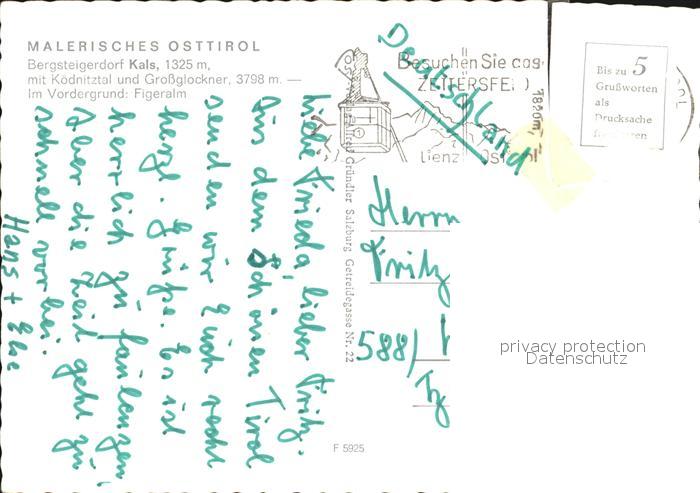 MALERISCHES OSTTIROL
Bergsteigerdorf Kals, 1325 m,
mit Ködnitztal und Großglockner, 3798 m. —
Im Vordergrund: Figeralm
Liebe Frieda, lieber Fritz.
Aus dem schönen Tirol
senden wir Euch recht
herzl. Grüße. Es ist
herrlich zu faulenzen,
Aber die Zeit geht zu
schnell vorbei.
Hans + Else
Gründler Salzburg Getreidegasse Nr. 22
F 5925
Besuchen Sie das
ZETTERSFELD
1820m
Lienz Ost
Deutschland
Bis zu 5
Grußworten
als
Drucksache
Herrn
Fritz
588/
privacy protection
Datenschutz